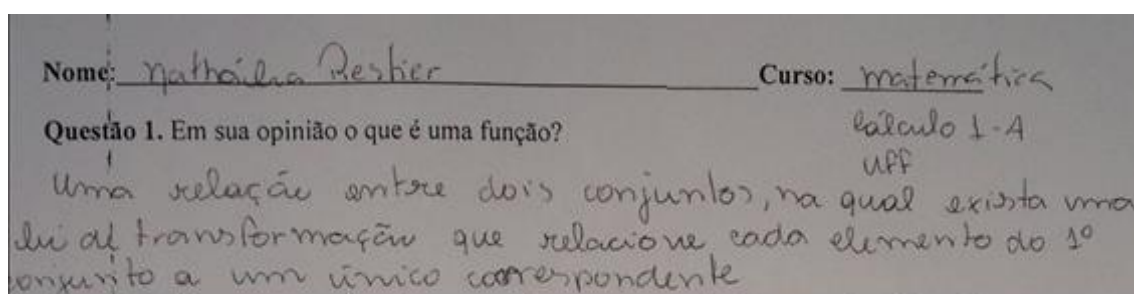 Nome: Nathália Restier Curso: matemática
Questão 1. Em sua opinião o que é uma função? Cálculo 1-A
UFF
Uma relação entre dois conjuntos, na qual exista uma
lei de transformação que relacione cada elemento do 1º
conjunto a um único correspondente